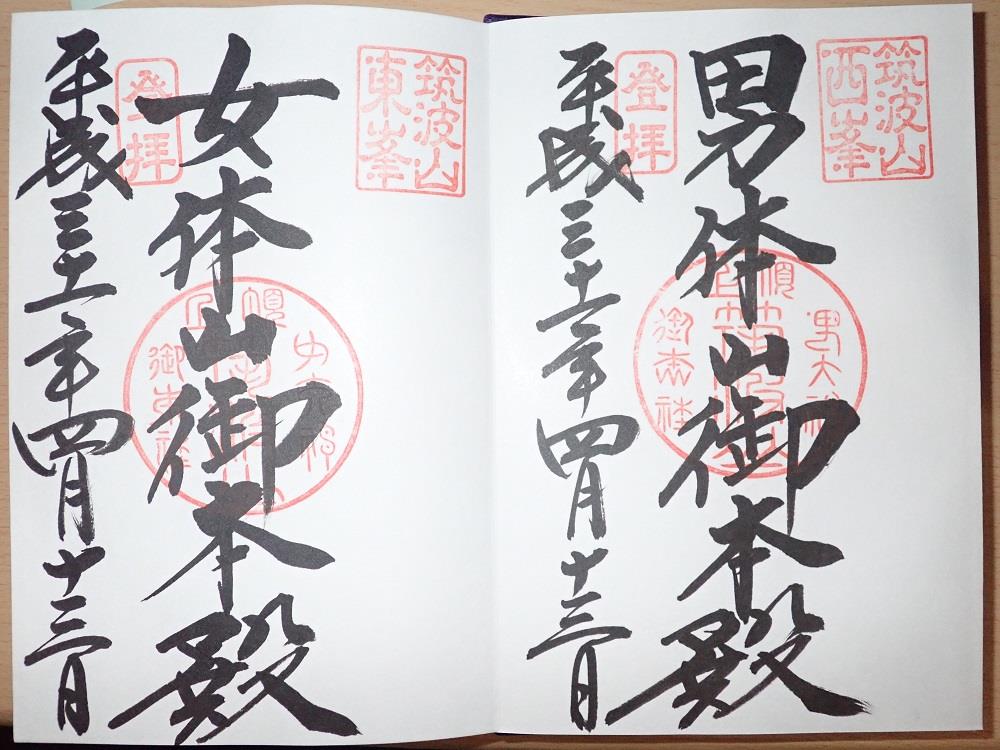 筑波山
西峯
男体山御本殿
登拝
平成三十一年四月十三日
筑波山
東峯
女体山御本殿
登拝
平成三十一年四月十三日